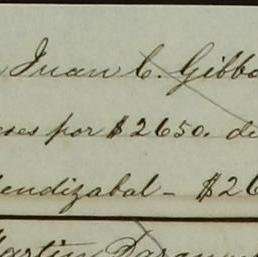 Juan C. Gibbo
eses por $2650. de
endizabal - $26
Martin